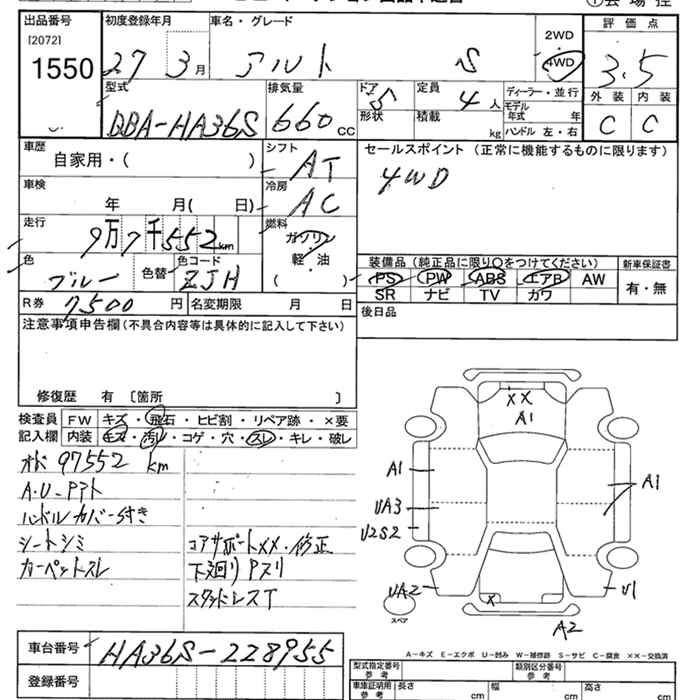 出品番号 初度登録年月 車名・グレード 評価点
[20721]
1550
27 3月 アルト S
2WD
4WD
3.5
型式 排気量 ドア 定員 ディーラー・並行 外装 内装
DBA-HA36S 660cc 5 4人
形状 積載 kg モデル年式 年
ハンドル 左・右
C C
車歴 自家用・( ) シフト AT
セールスポイント (正常に機能するものに限ります)
4WD
車検 年 月( 日) 冷房 AC
走行 9万7千552km
燃料 ガソリン
軽・油
( )
色 ブルー 色替 色コード ZJH
装備品 (純正品に限り○をつけてください) 新車保証書
PS PW ABS エアB AW
SR ナビ TV カワ
有・無
R券 7500円 名変期限 月 日
後日品
注意事項申告欄(不具合内容等は具体的に記入して下さい)
修復歴 有 〔箇所 〕
検査員 記入欄
FW キズ・飛石・ヒビ割・リペア跡・×要
内装 キズ・汚れ・コゲ・穴・スレ・キレ・破レ
97552 km
ハンドルカバー付き
シートシミ
カーペットスレ
コアサポートXX・修正
下廻りPスリ
スタッドレスT
XX
A1
A1
UA3
U2S2
UA2
A1
U1
X
A2
スペア
A-キズ E-エクボ U-凹み W-補修跡 S-サビ C-腐食 ××-交換済
車台番号 HA36S-228955
登録番号
型式指定番号 参考 類別区分番号 参考
車庫証明用 参考 長さ cm 幅 cm 高さ cm